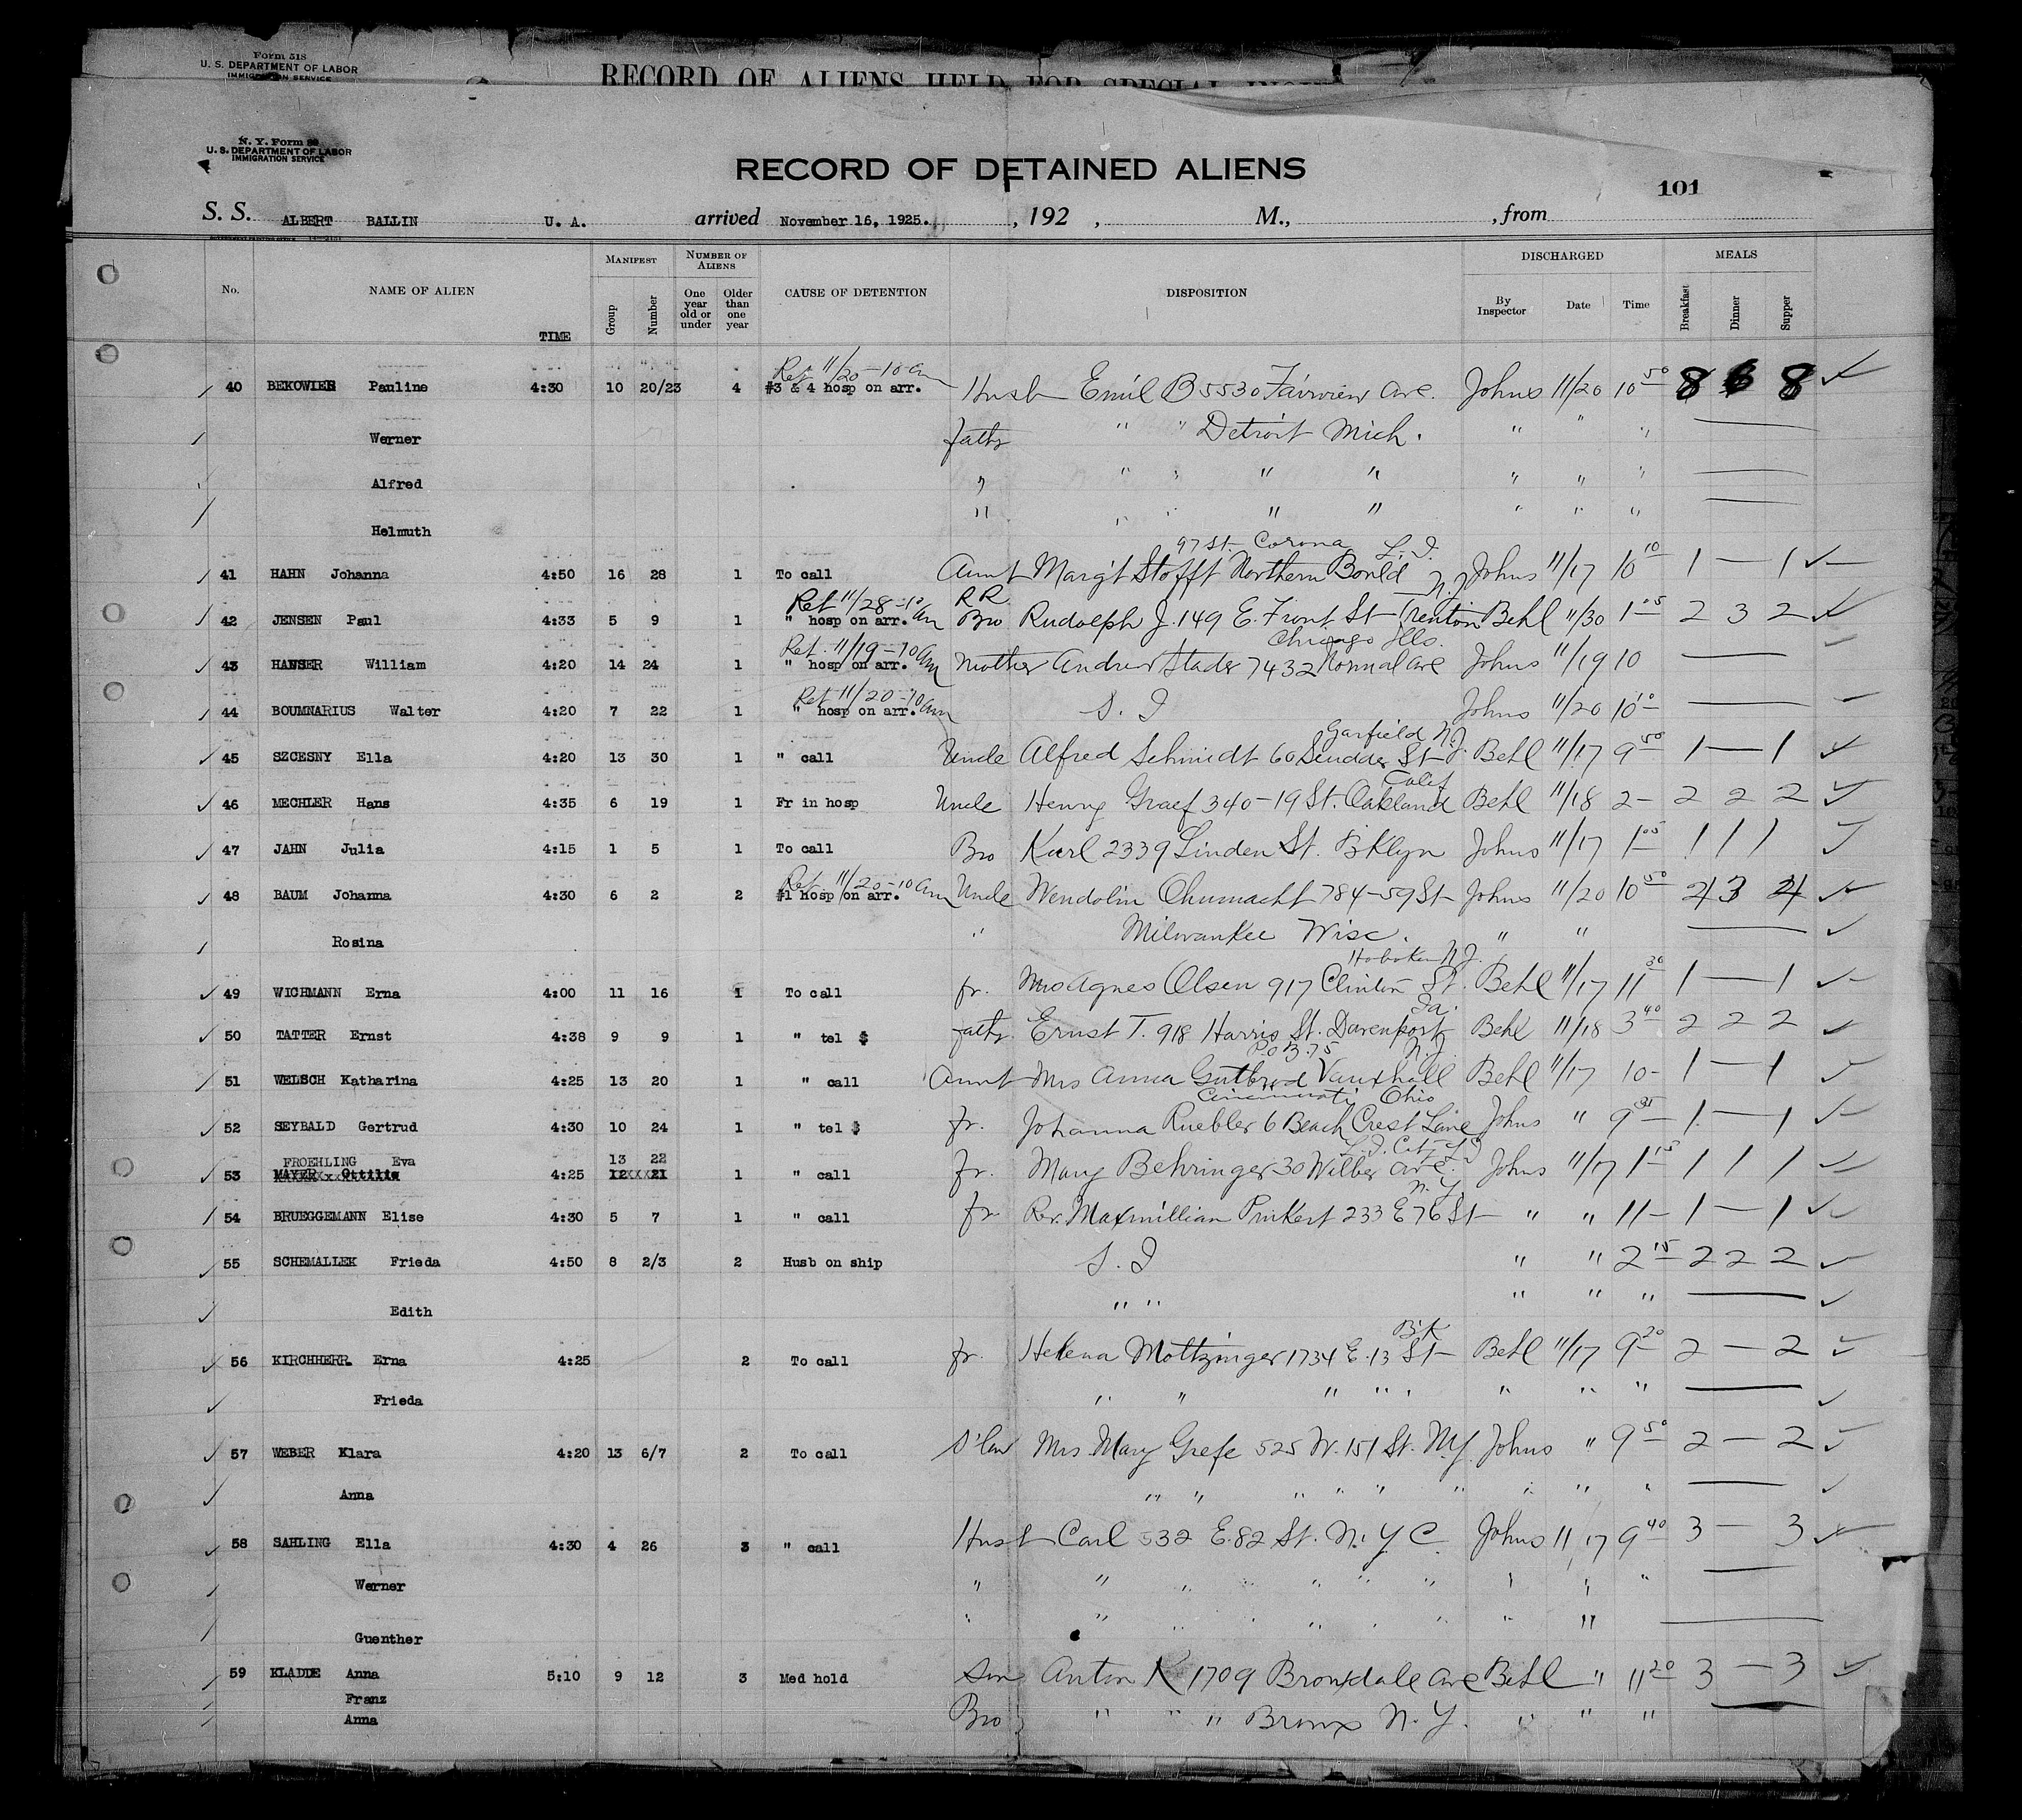 Form 518
U. S. DEPARTMENT OF LABOR
IMMIGRATION SERVICE
RECORD OF ALIENS HELD FOR SPECIAL INQUIRY
N. Y. Form
U. S. DEPARTMENT OF LABOR
IMMIGRATION SERVICE
RECORD OF DETAINED ALIENS
101
S. S. ALBERT BALLIN U. A. arrived November 16, 1925. , 192 , M., , from
No. NAME OF ALIEN TIME MANIFEST Group Number NUMBER OF ALIENS One year old or under Older than one year CAUSE OF DETENTION DISPOSITION DISCHARGED By Inspector Date Time MEALS Breakfast Dinner Supper
Ret 11/20 - 10 am
40 BEKOWIES Pauline 4:30 10 20/23 4 #3 & 4 hosp on arr. Husb Emil B 5530 Fairview Ave. Johns 11/20 10 50 8 6 8
Werner fath " " Detroit Mich. " " "
Alfred " " " " " " " "
Helmuth " " " " " " " "
97 St. Corona L. I.
41 HAHN Johanna 4:50 16 28 1 To call Aunt Marg't Stofft Northern Bould Johns 11/17 10 10 1 — 1
Ret 11/28 - 10 am R R N J
42 JENSEN Paul 4:33 5 9 1 " hosp on arr. Bro Rudolph J. 149 E. Front St - Trenton Behl 11/30 1 05 2 3 2
Ret. 11/19 - 10 am Chicago Ills.
43 HANSER William 4:20 14 24 1 " hosp on arr. Mother Andrew Stader 7432 Normal Ave Johns 11/19 10
Ret 11/20 - 10 am
44 BOUMNARIUS Walter 4:20 7 22 1 " hosp on arr. S. I Johns 11/20 10 10
Garfield N.J.
45 SZCESNY Ella 4:20 13 30 1 " call Uncle Alfred Schmidt 60 Scudder St - Behl 11/17 9 50 1 — 1
Calif
46 MECHLER Hans 4:35 6 19 1 Fr in hosp Uncle Henry Graef 340 - 19 St. Oakland Behl 11/18 2 - 2 2 2
47 JAHN Julia 4:15 1 5 1 To call Bro Karl 2339 Linden St. Bklyn Johns 11/17 1 05 1 1 1
Ret 11/20 - 10 am
48 BAUM Johanna 4:30 6 2 2 #1 hosp on arr. Uncle Wendolin 784 - 59 St - Johns 11/20 10 50 4 3 4
Rosina " Milwaukee Wisc. " "
Hoboken N J.
49 WICHMANN Erna 4:00 11 16 1 To call fr. Mrs Agnes Olsen 917 Clinton St. Behl 11/17 11 30 1 — 1
Ia.
50 TATTER Ernst 4:38 9 9 1 " tel $ fath. Ernst T. 918 Harris St. Davenport Behl 11/18 3 40 2 2 2
P.O B. 75 N.J.
51 WELSCH Katharina 4:25 13 20 1 " call Aunt Mrs Anna Gutbrod Vauxhall Behl 11/17 10 - 1 — 1
Cincinnati Ohio
52 SEYBALD Gertrud 4:30 10 24 1 " tel $ fr. Johanna Ruebler 6 Beach Crest Lane Johns " 9 35 1 — 1
FROEHLING Eva 13 22 L.I. City L I
53 MAYER Ottilie 4:25 12 21 1 " call fr. Mary Behringer 30 Wilber Ave. Johns 11/17 1 15 1 1 1
N. Y.
54 BRUEGGEMANN Elise 4:30 5 7 1 " call fr Rev. Maxmillian Pinkert 233 E 76 St - " " 11 - 1 — 1
55 SCHEMALLEK Frieda 4:50 8 2/3 2 Husb on ship S. I " " 2 15 2 2 2
Edith " " " " "
Bk
56 KIRCHHERR Erna 4:25 2 To call fr. Helena Mottzinger 1734 E. 13 St - Behl 11/17 9 20 2 — 2
Frieda " " " " " " " "
57 WEBER Klara 4:20 13 6/7 2 To call S'law Mrs. Mary Grefe 525 W. 151 St. N.Y. Johns " 9 50 2 — 2
Anna " " " " " " " " "
58 SAHLING Ella 4:30 4 26 3 " call Husb Carl 532 E. 82 St. N. Y C. Johns 11/17 9 40 3 — 3
Werner " " " " " " " " " "
Guenther " " " " " " " "
59 KLADDE Anna 5:10 9 12 3 Med hold Son Anton K 1709 Bronxdale Ave Behl " 11 20 3 — 3
Franz
Anna Bro " " " Bronx N. Y. " " "